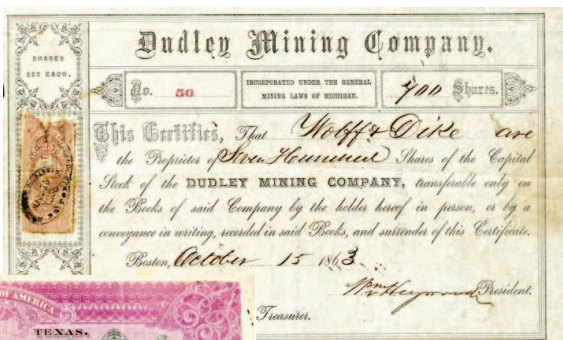 Dudley Mining Company.
SHARES
$25 EACH.
No. 56
INCORPORATED UNDER THE GENERAL
MINING LAWS OF MICHIGAN.
700 Shares.
This Certifies, That Wolff & Dike are
the Proprietor of Seven Hundred Shares of the Capital
Stock of the DUDLEY MINING COMPANY, transferable only on
the Books of said Company by the holder hereof in person, or by a
conveyance in writing, recorded in said Books, and surrender of this Certificate.
Boston, October 15 1863
Wm Heywood President.
Treasurer.
OF AMERICA
TEXAS.